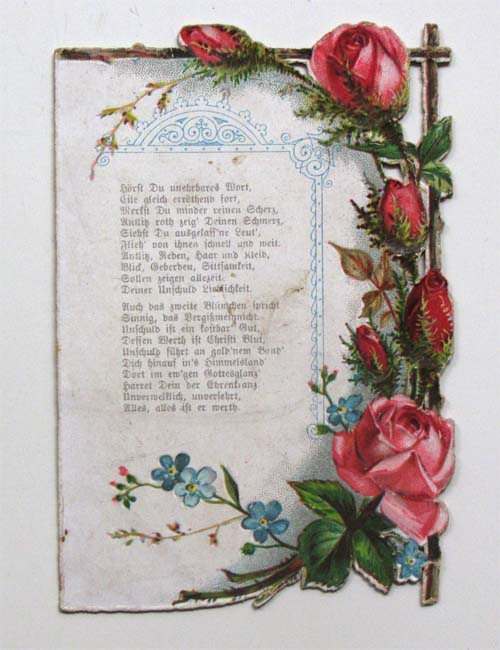 Hörst Du unehrbares Wort,
Eile gleich erröthend fort,
Merkst Du minder reinen Scherz,
Antlitz roth zeig' Deinen Schmerz,
Siehst Du ausgelass'ne Leut',
Flieh' von ihnen schnell und weit.
Antlitz, Reden, Haar und Kleid,
Blick, Geberden, Sittsamkeit,
Sollen zeigen allezeit
Deiner Unschuld Lieblichkeit.
Auch das zweite Blümchen spricht
Sinnig, das Vergißmeinnicht.
Unschuld ist ein kostbar' Gut,
Dessen Werth ist Christi Blut,
Unschuld führt an gold'nem Band'
Dich hinauf in's Himmelsland
Dort im ew'gen Gottesglanz'
Harret Dein der Ehrenkranz
Unverwelklich, unversehrt,
Alles, alles ist er werth.